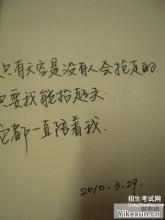 只有天空是没有人会抢走的.
只要我能抬起头
它都一直陪着我.
2010.3.29
招生考试网
Yikexun.cn